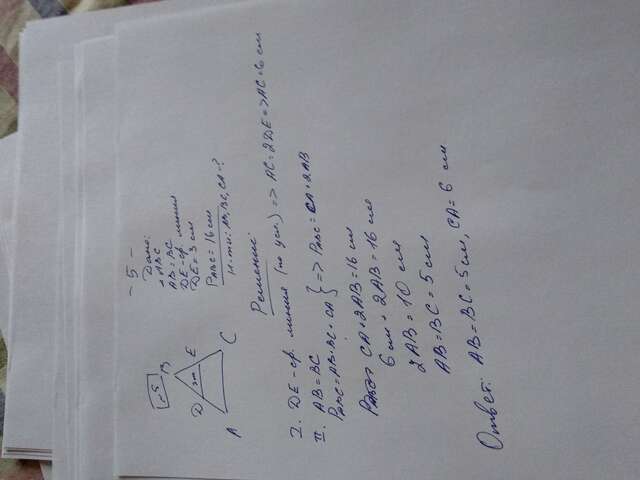 - 5 -
5
B
D
E
3см
A
C
Дано:
▵ABC
AB=BC
DE-ср. линия
DE=3 см
PABC=16 см
Н-ти: AB, BC, CA-?
Решение:
I. DE-ср. линия (по усл) => AC=2DE=>AC=6 см
II. AB=BC
PABC=AB+BC+CA } => PABC=CA+2AB
CA+2AB=16 см
6 см+2AB=16 см
2AB=10 см
AB=BC=5 см
Ответ: AB=BC=5см, CA=6 см